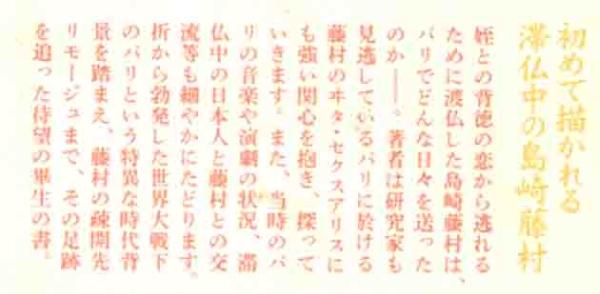 初めて描かれる
滞仏中の島崎藤村
姪との背徳の恋から逃れる
ために渡仏した島崎藤村は、
パリでどんな日々を送った
のか――。著者は研究家も
見逃しているパリに於ける
藤村のヰタ・セクスアリスに
も強い関心を抱き、探って
いきます。また、当時のパ
リの音楽や演劇の状況、滞
仏中の日本人と藤村との交
流等も細やかにたどります。
折から勃発した世界大戦下
のパリという特異な時代背
景を踏まえ、藤村の疎開先
リモージュまで、その足跡
を追った待望の畢生の書。